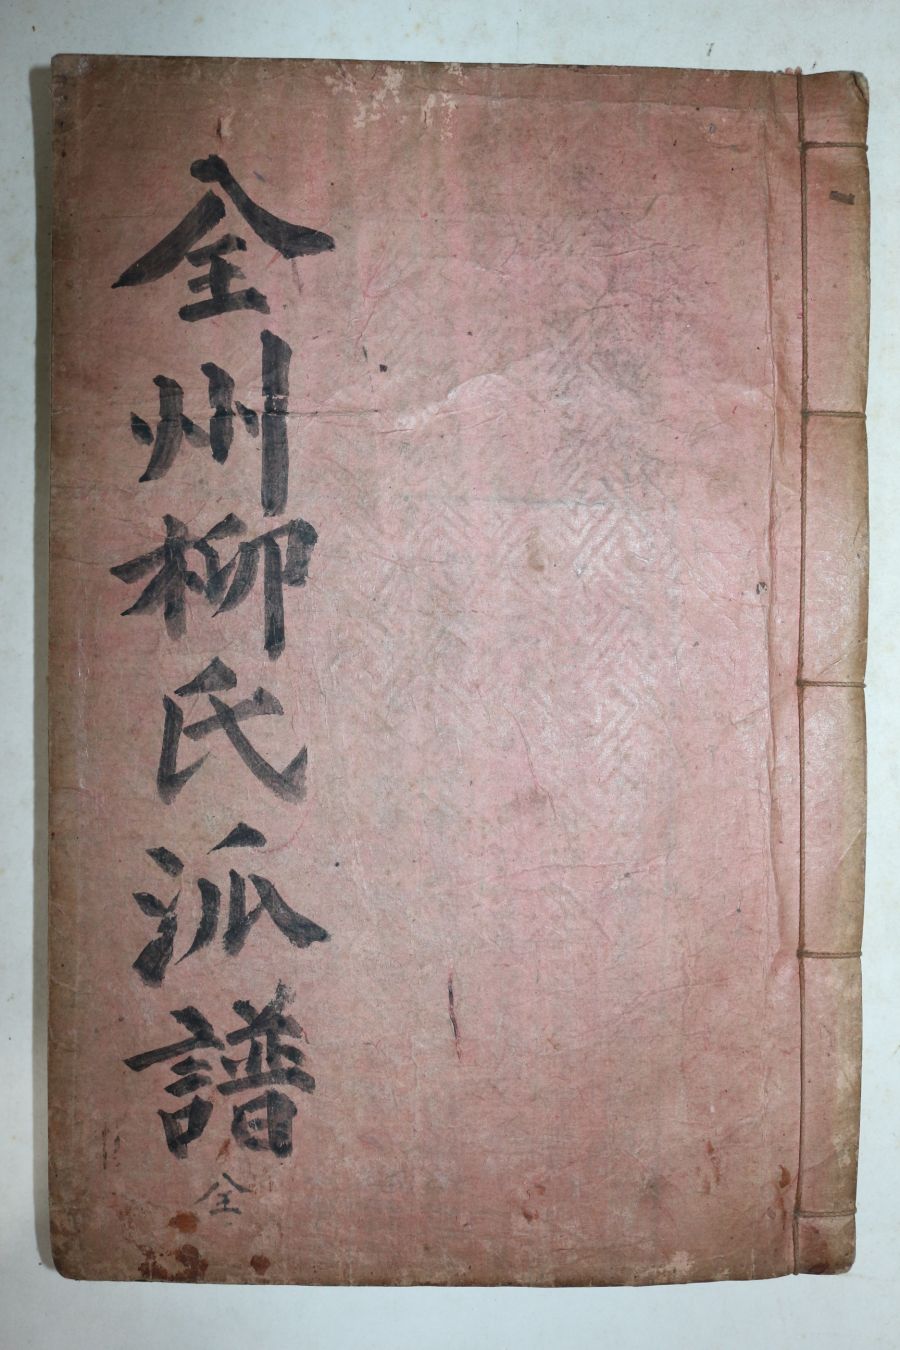 全州柳氏派譜
全